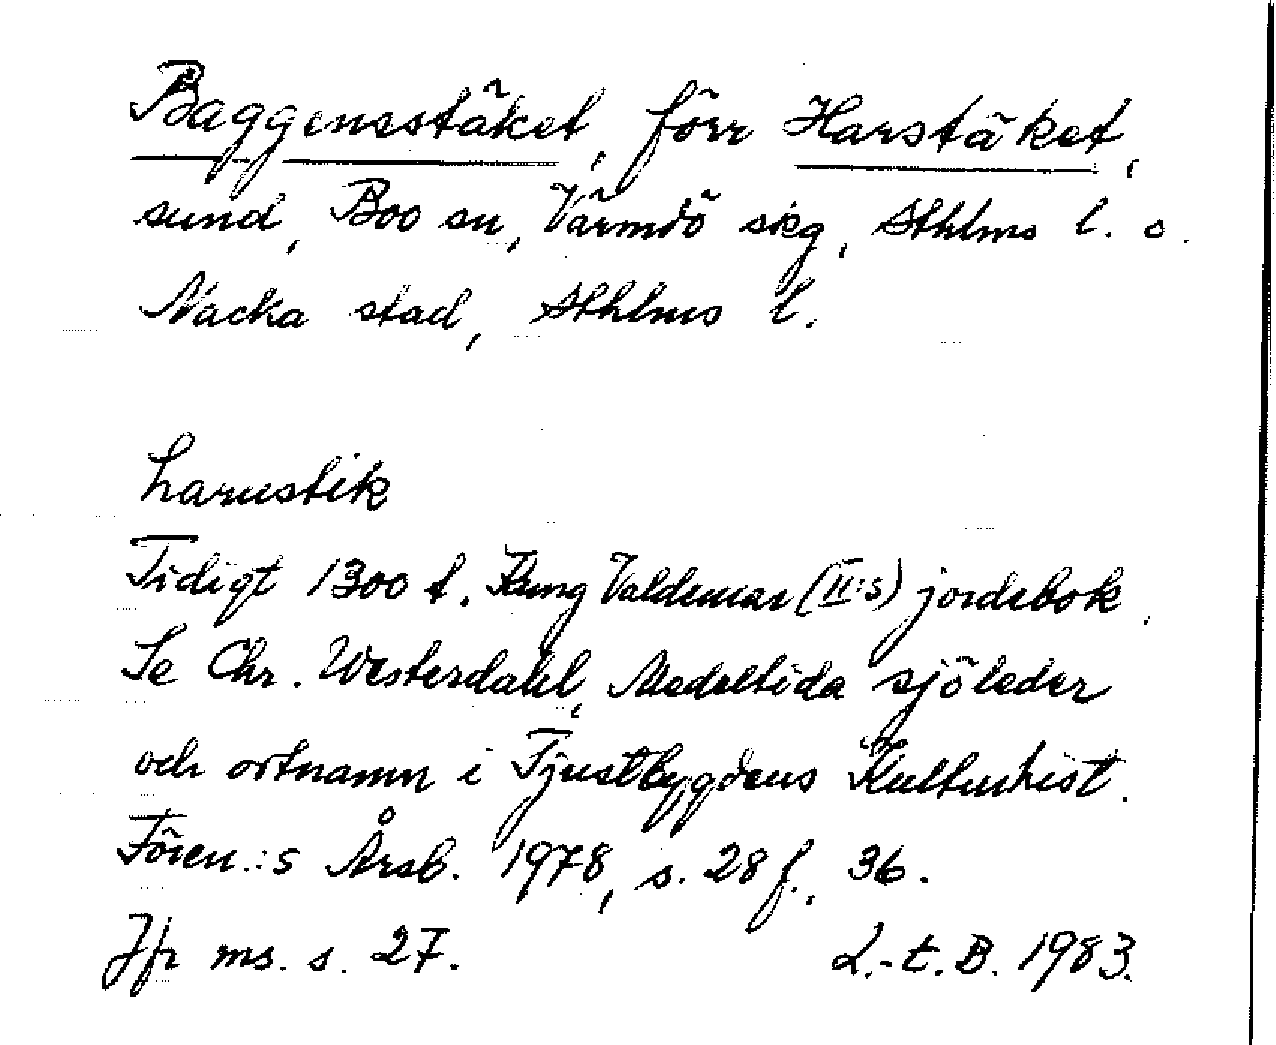 Baggensstäket, förr Harstäket,
sund, Boo sn, Värmdö skg, Sthlms l. o.
Nacka stad, Sthlms l.
harustik
Tidigt 1300 t. Kung Valdemar (II:s) jordebok.
Se Chr. Westerdahl, Medeltida sjöleder
och ortnamn i Tjustbygdens Kulturhist.
Fören.:s Årsb. 1978, s. 28 f., 36.
Jfr ms. s. 27. L.-t. B. 1983.